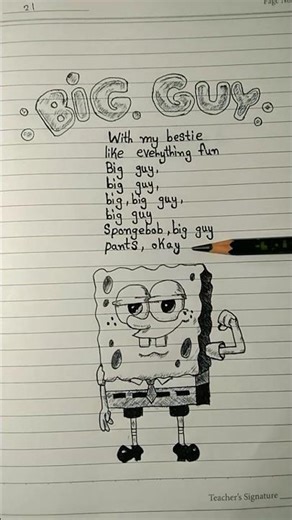 21
Page No
BIG GUY
With my bestie
like everything fun
Big guy,
big guy,
big, big guy,
big guy
Spongebob, big guy
pants, okay
Teacher's Signature